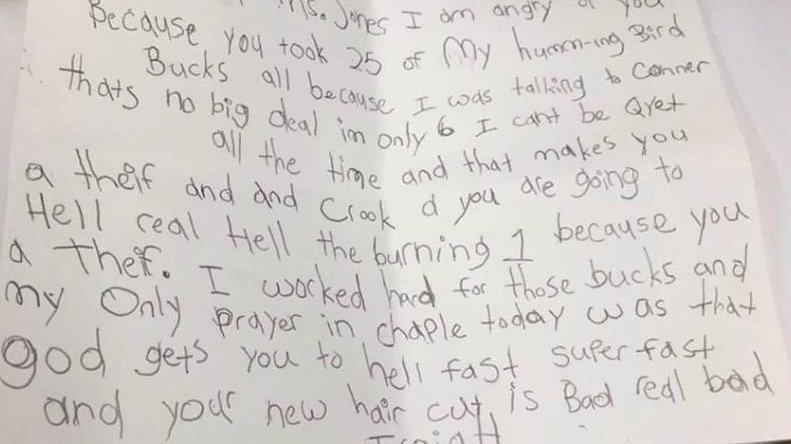 Ms. Jones I am angry you
Because you took 25 of My humm-ing Bird
Bucks all because I was talking to Conner
thats no big deal im only 6 I cant be Qyet
all the time and that makes you
a theif and and Crook d you are going to
Hell real Hell the burning 1 because you
a Thef. I worked hard for those bucks and
my Only prayer in chaple today was that
god gets you to hell fast super fast
and your new hair cut is Bad real bad